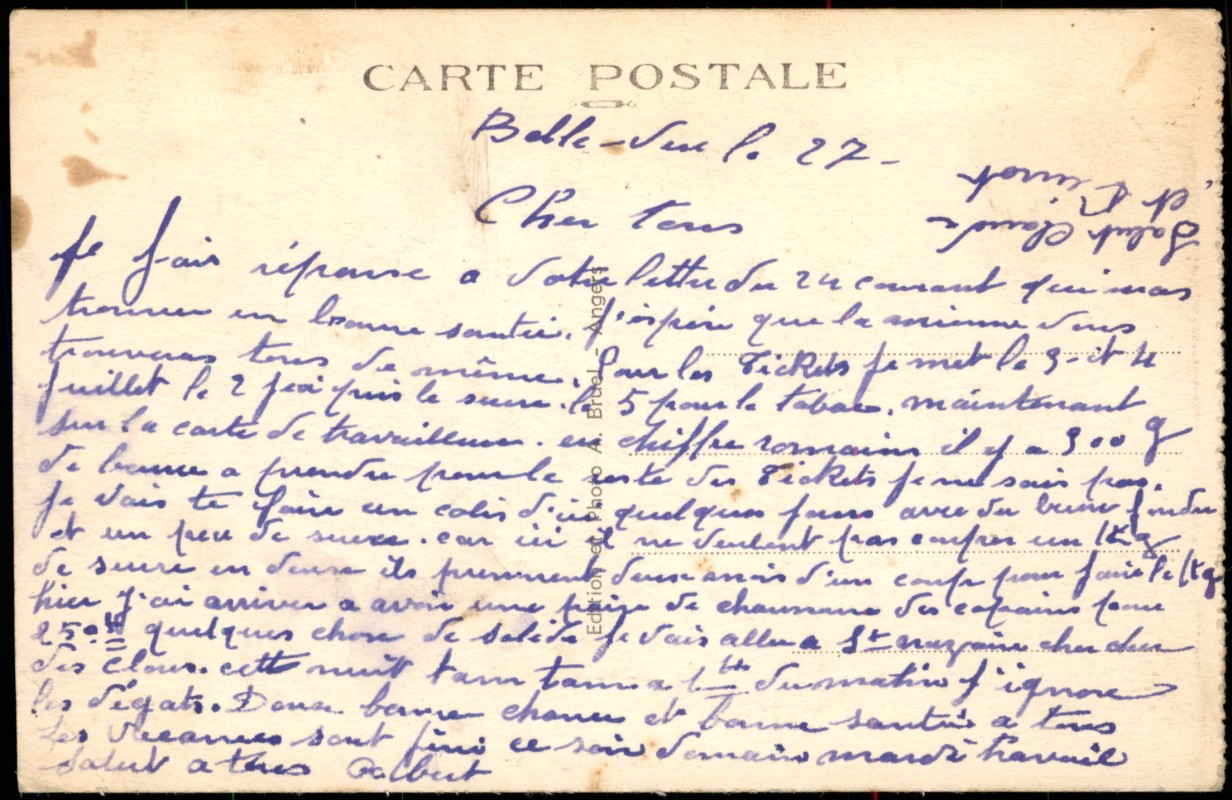 CARTE POSTALE
Belle-Vue le 27-
Cher tous
Salut Claude
et
je fais réponse a votre lettre du 24 courant qui mas
trouver en bonne santée. j'espère que la mienne vous
trouveras tous de même. Pour les Tickets je met le 3- et 4
juillet le 2 j'ai pris le sucre. le 5 pour le tabac. maintenant
sur la carte de travailleur. en chiffre romains il y a 300 g
de beurre a prendre pour le reste des Tickets je ne sais pas.
je vais te faire un colis d'ici quelques jours avec du beurre fondu
et un peu de sucre. car ici il ne veulent pas couper un Kg
de sucre en deux ils prennent deux mois d'un coup pour faire le Kg
hier j'ai arriver a avoir une paire de chaussure des copains pour
250 quelques chose de solide je vais aller a St nazaire chercher
des clous. cette nuit tam tam a 1 du matin j'ignore
les dégats. Donc bonne chance et bonne santée a tous
les vacances sont fini ce soir demain mardi travail
Salut a tous Albert
Edition et Photo A. Bruel - Angers